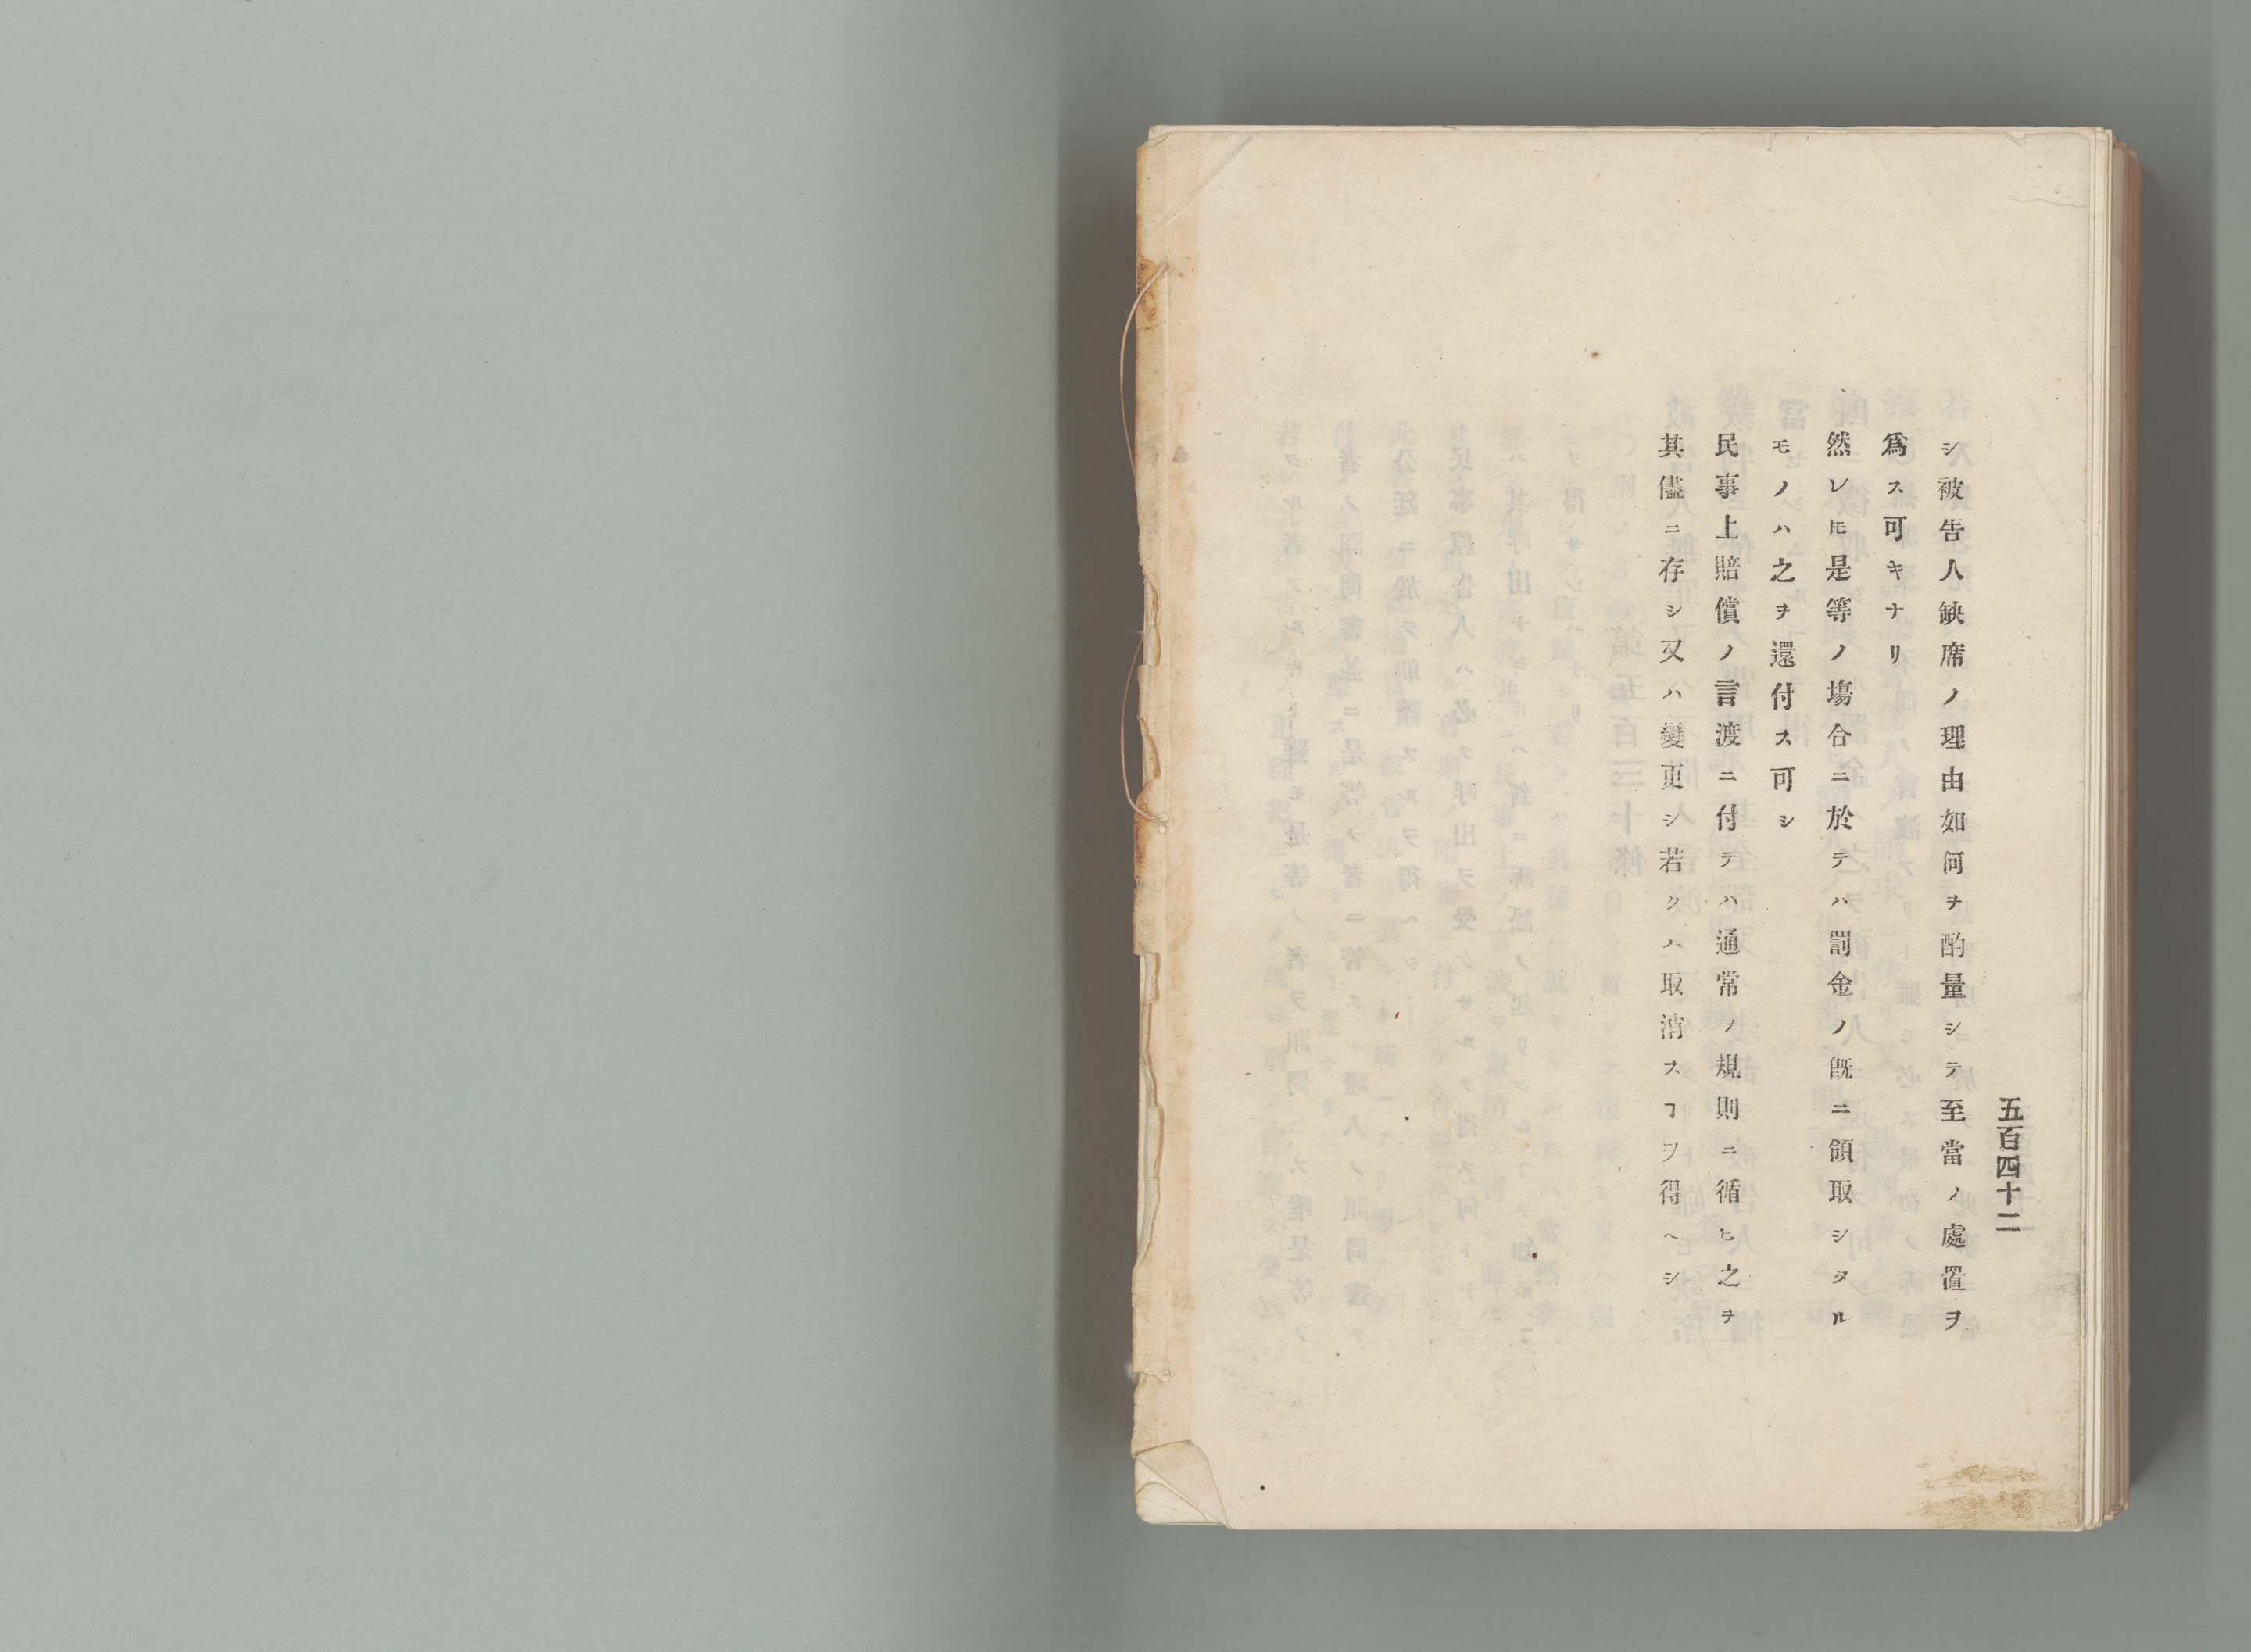 五百四十二
シ被告人缺席ノ理由如何ヲ酌量シテ至當ノ處置ヲ
爲ス可キナリ
然レ𪜈是等ノ塲合ニ於テハ罰金ノ既ニ領取シタル
モノハ之ヲ還付ス可シ
民事上賠償ノ言渡ニ付テハ通常ノ規則ニ循ヒ之ヲ
其儘ニ存シ又ハ變更シ若クハ取消スヿヲ得ヘシ